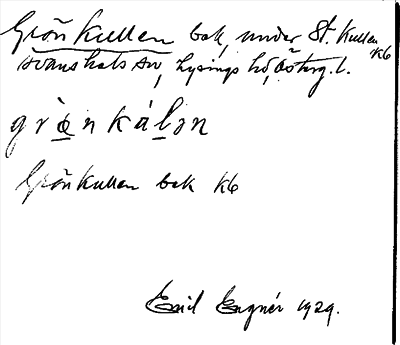 Grönkullen bak, under St. Kullen k6
Svanshals sn, Lysings hd, Österg. l.
grö̀nkálən
Grönkullen bak k6
Emil Engnér 1929.